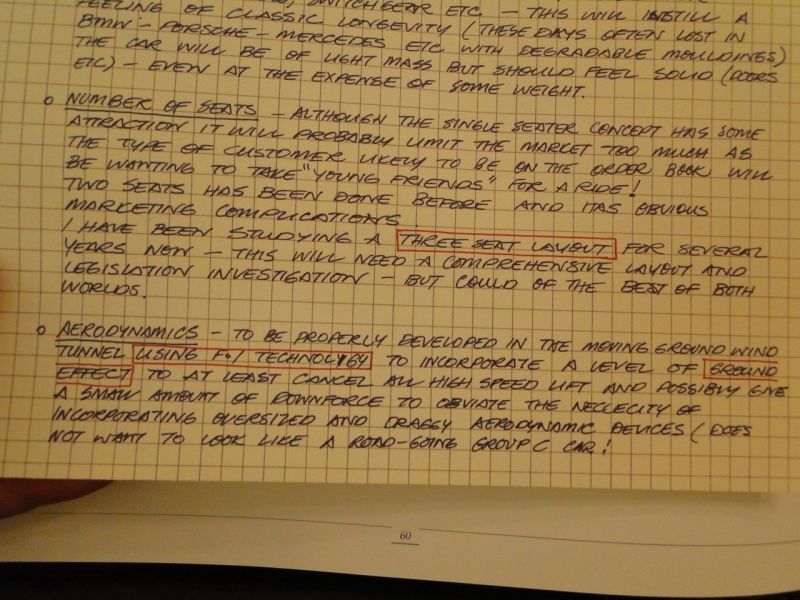 FEELING OF CLASSIC LONGEVITY (THESE DAYS OFTEN LOST IN
BMW - PORSCHE - MERCEDES ETC WITH DEGRADABLE MOULDINGS)
THE CAR WILL BE OF LIGHT MASS BUT SHOULD FEEL SOLID (DOORS
ETC) - EVEN AT THE EXPENSE OF SOME WEIGHT.
o NUMBER OF SEATS - ALTHOUGH THE SINGLE SEATER CONCEPT HAS SOME
ATTRACTION IT WILL PROBABLY LIMIT THE MARKET TOO MUCH AS
THE TYPE OF CUSTOMER LIKELY TO BE ON THE ORDER BOOK WILL
BE WANTING TO TAKE "YOUNG FRIENDS" FOR A RIDE!
TWO SEATS HAS BEEN DONE BEFORE AND HAS OBVIOUS
MARKETING COMPLICATIONS.
I HAVE BEEN STUDYING A THREE SEAT LAYOUT FOR SEVERAL
YEARS NOW - THIS WILL NEED A COMPREHENSIVE LAYOUT AND
LEGISLATION INVESTIGATION - BUT COULD OF THE BEST OF BOTH
WORLDS.
o AERODYNAMICS - TO BE PROPERLY DEVELOPED IN THE MOVING GROUND WIND
TUNNEL USING F.1 TECHNOLOGY TO INCORPORATE A LEVEL OF GROUND
EFFECT TO AT LEAST CANCEL ALL HIGH SPEED LIFT AND POSSIBLY GIVE
A SMALL AMOUNT OF DOWNFORCE TO OBVIATE THE NECCECITY OF
INCORPORATING OVERSIZED AND DRAGGY AERODYNAMIC DEVICES (DOES
NOT WANT TO LOOK LIKE A ROAD-GOING GROUP C CAR!
60